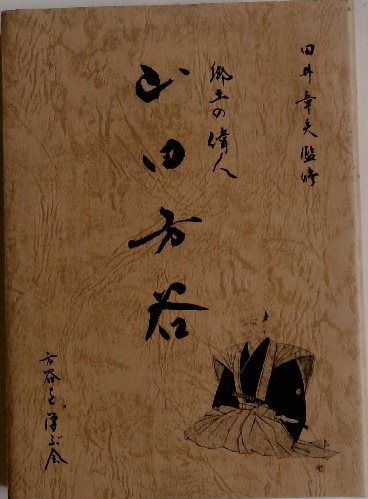 田井章夫監修
郷土の偉人
山田方谷
方谷を学ぶ会